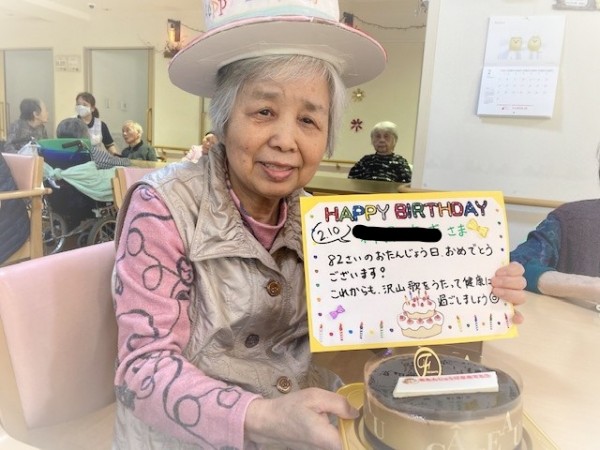 HAPPY
HAPPY BIRTHDAY
2/10
さま
82さいのおたんじょう日、おめでとう
ございます!
これからも、沢山歌をうたって健康に
過ごしましょう